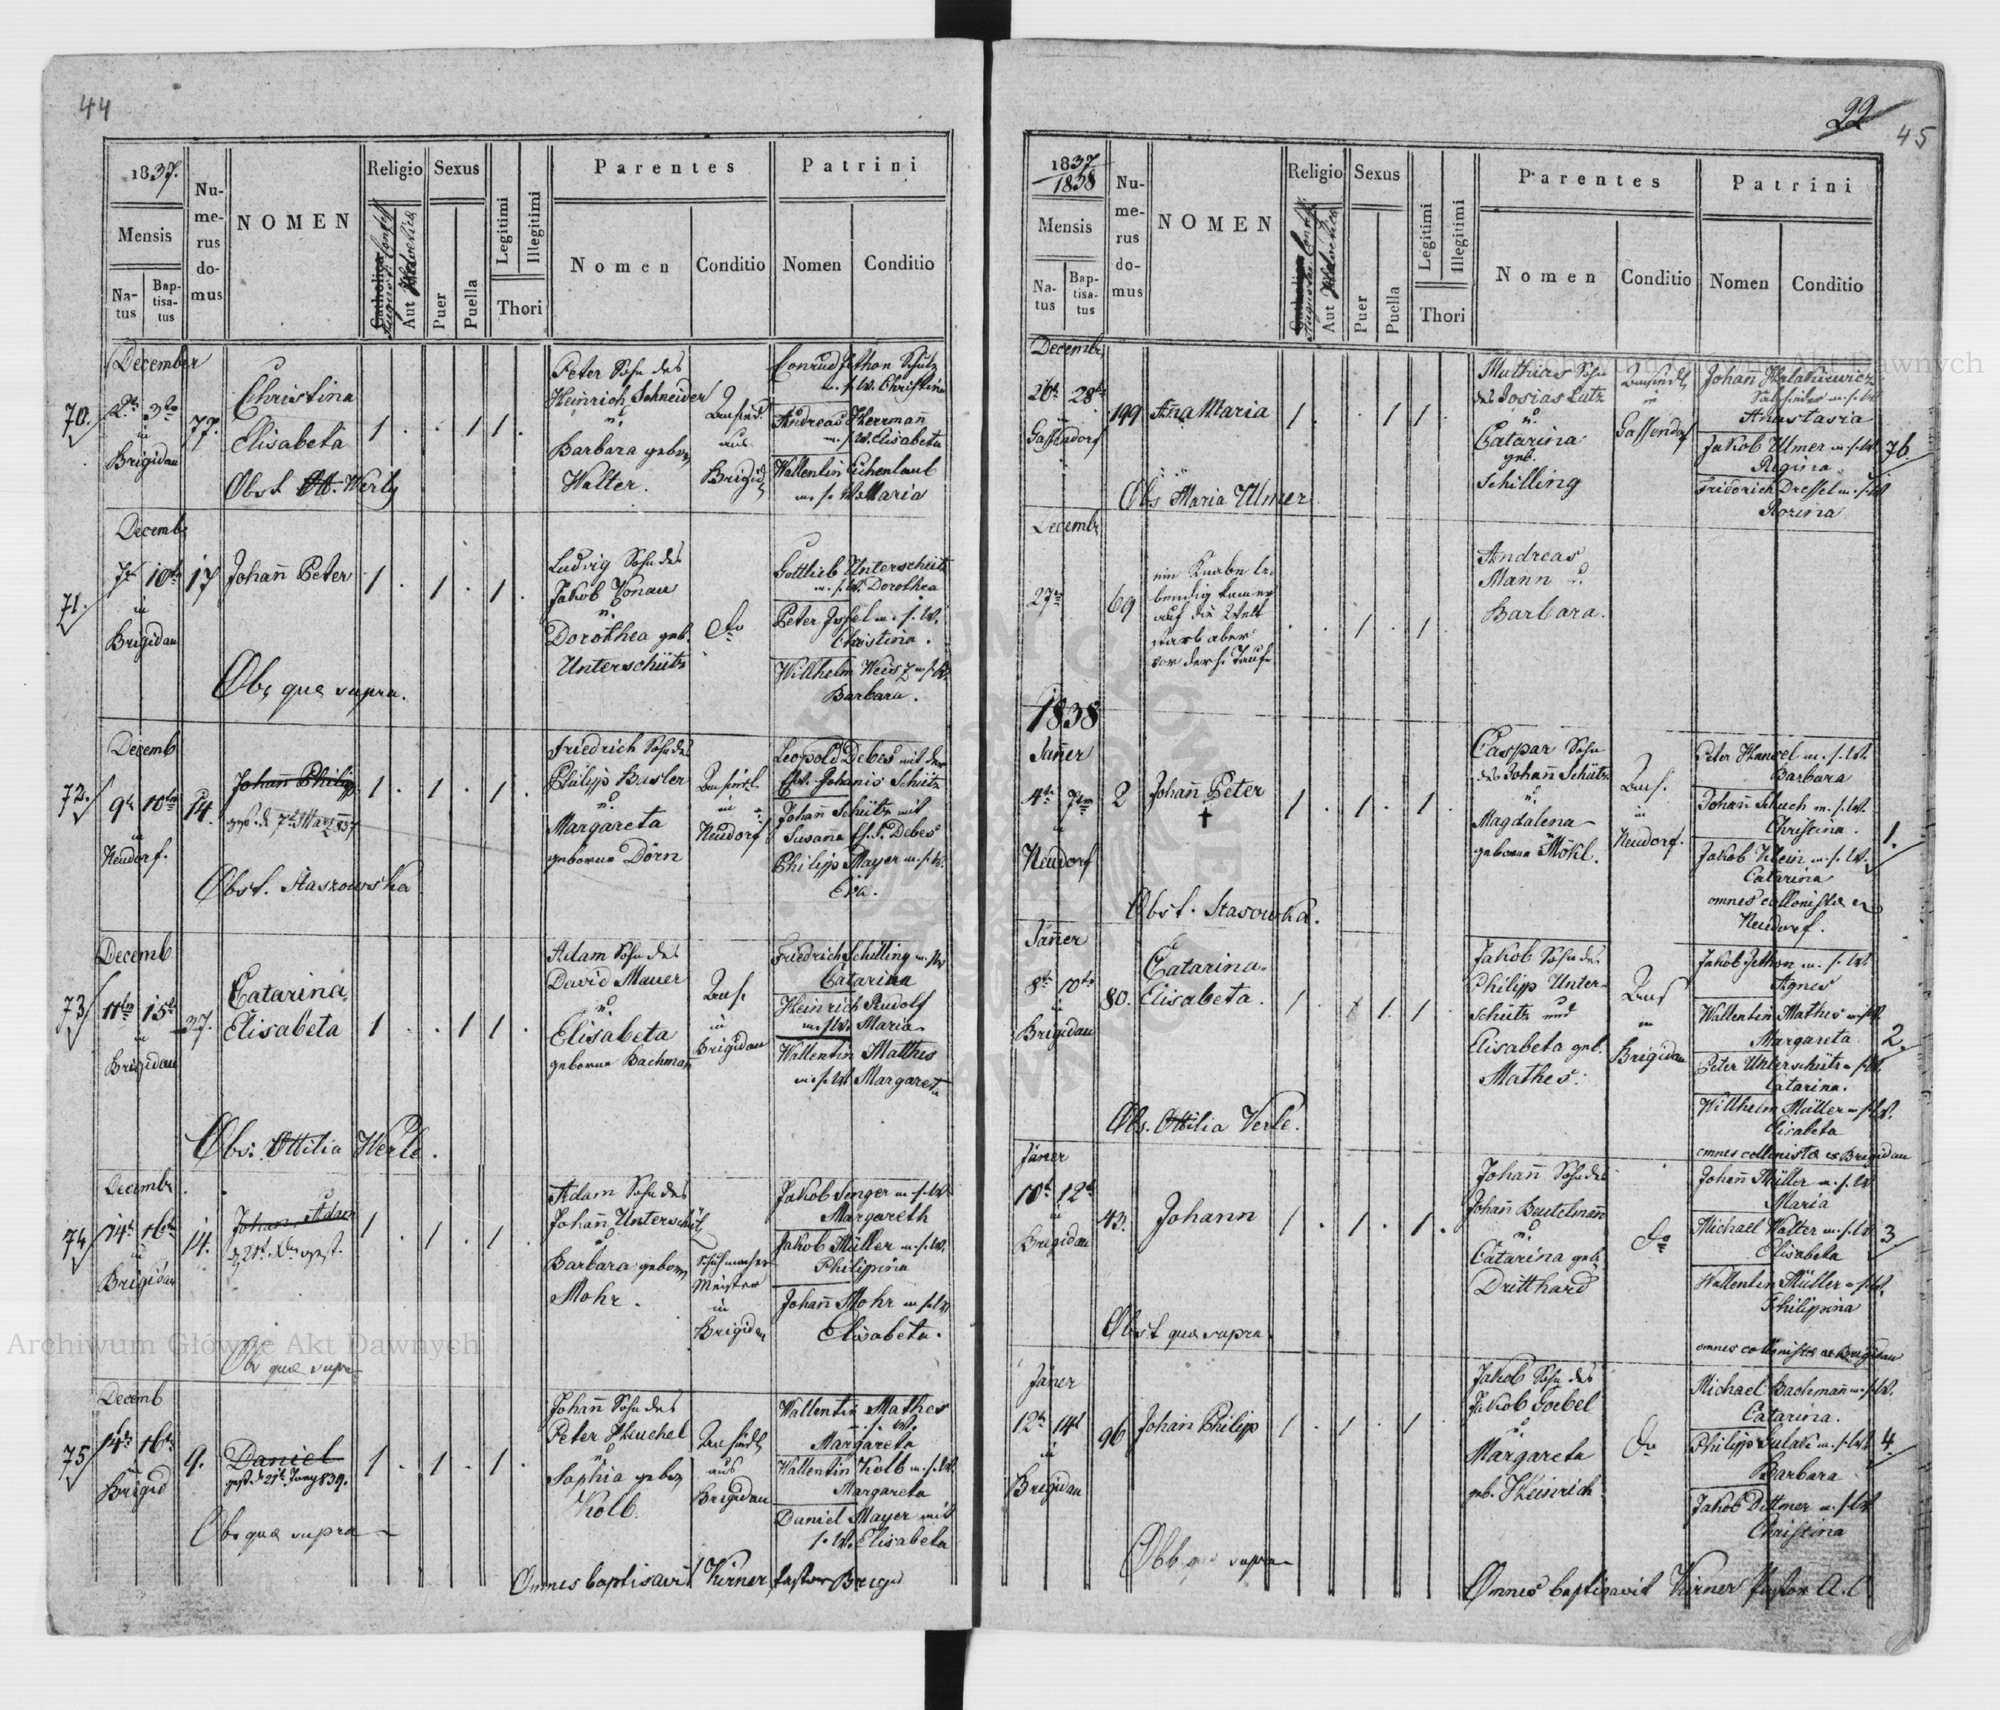 44
1837.
Mensis
Na-
tus
Bap-
tisa-
tus
Nu-
me-
rus
do-
mus
NOMEN
Religio
Catholica
August. Confess.
Aut Helvetica
Sexus
Puer
Puella
Legitimi
Illegitimi
Thori
Parentes
Nomen
Conditio
Patrini
Nomen
Conditio
70.
December
2t 3ter
in
Brigidau
77.
Christina
Elisabeta
Obst. Ott. Werly
1 . . 1 1 .
Peter Sohn des
Heinrich Schneider
u.
Barbara gebor.
Walter.
aus
Brigid
Conrad Jethon Schütz
m. s. W. Christina
Andreas Herrmann
m. s. W. Elisabeta
Wallentin Eichenlaub
m. s. W. Maria
71.
Decemb
7t 10ter
in
Brigidau
17
Johann Peter
Obs quae supra.
1 . 1 . 1 .
Ludvig Sohn des
Jakob Konau
u.
Dorothea geb.
Unterschütz
do
Gottlieb Unterschütz
m. s. W. Dorothea
Peter Jssel m. s. W.
Christina.
Willhelm Weisz m. s. W.
Barbara.
72.
Decemb
9t 10ter
in
Neudorf.
14.
Johann Philip
Obst. Staszowska
1 . 1 . 1 .
Friedrich Sohn des
Philipp Busler
u.
Margareta
geborne Dörn
in
Neudorf
Leopold Debes mit der
Johann Schütz mit
Susanna
Philipp Mayer m. s. W.
Eva.
73
Decemb
11ter 15t
in
Brigidau
37.
Catarina
Elisabeta
Obs: Ottilia Werle.
1 . . 1 1 .
Adam Sohn des
David Mauer
u.
Elisabeta
geborne Bachmann
in
Brigidau
Friedrich Schilling m. s. W
Catarina
Heinrich Rudolf
m. s. W. Maria
Wallentin Mathes
m. s. W. Margareta
74
Decemb
14t 16ter
in
Brigidau
14.
Johann Adam
Obs quae supra
1 . 1 . 1 .
Adam Sohn des
Johann Unterschütz
u.
Barbara geborn
Mohr.
Schuhmacher
Meister
in
Brigidau
Jakob Senger m. s. W.
Margareth
Jakob Müller m. s. W.
Philippina
Johann Mohr m. s. W.
Elisabeta.
75
Decemb
14t 16ter
in
Brigid
9.
Daniel
gest. d. 21t Juny 839.
Obs quae supra
1 . 1 . 1 .
Johann Sohn des
Peter Heuchel
u.
Sophia gebor.
Kolb.
aus
Brigidau
Wallentin Mathes
m. s. W.
Margareta
Wallentin Kolb m. s. W.
Margareta
Daniel Mayer mit
s. W. Elisabeta
Omnes baptisavit Kirner Pastor Brigid
22
45
1837
1838
Mensis
Na-
tus
Bap-
tisa-
tus
Nu-
me-
rus
do-
mus
NOMEN
Religio
Catholica
Aut Helvetica
Sexus
Puer
Puella
Legitimi
Illegitimi
Thori
Parentes
Nomen
Conditio
Patrini
Nomen
Conditio
Decemb
26t 28t
Gassendorf
199
Anna Maria
Obs Maria Ulmer
1 . . 1 1 .
Mathias Sohn
des Josias Lutz
u.
Catarina
geb.
Schilling
in
Gassendorf
Anastasia
Jakob Ulmer m. s. W.
Regina
Friedrich Dressel m. s. W.
Rosina
76.
Decemb
27ter
69
ein Knabe le-
bendig kam er
auf die Welt
starb aber
vor der h. Taufe
. . 1 . 1
Andreas
Mann u.
Barbara.
1838
Jänner
4t 7ter
in
Neudorf
2
Johann Peter
Obst. Stasowska.
1 . 1 . 1 .
Caspar Sohn
des Johann Schütz
u.
Magdalena
geborne Mökl.
in
Neudorf.
Peter Hansel m. s. W.
Barbara
Johann Schuch m. s. W.
Christina.
Jakob Klein m. s. W.
Catarina
omnes collonistae ex
Neudorf.
1.
Jänner
8t 10ter
in
Brigidau
80.
Catarina
Elisabeta.
Obs. Ottilia Verle.
Jakob Sohn des
Philipp Unter-
schütz und
Elisabeta geb.
Mathes.
in
Brigidau
Jakob Jethon m. s. W.
Agnes
Wallentin Mathes m. s. W.
Margareta
Peter Unterschütz m. s. W.
Catarina.
Willhelm Müller m. s. W.
Elisabeta
omnes collonistae ex Brigidau
2.
Jäner
10t 12t
in
Brigidau
43.
Johann
Obst quae supra
1 . 1 . 1 .
Johann Sohn des
Johann Beutelmann
u.
Catarina geb.
Dritthard
do
Johann Müller m. s. W
Maria
Michael Walter m. s. W
Elisabeta
Wallentin Müller m. s. W.
Philippina
omnes collonistae ex Brigidau
3
Jäner
12t 14t
in
Brigidau
96
Johan Philipp
Obst quae supra
1 . 1 . 1 .
Jakob Sohn des
Jakob Goebel
u.
Margareta
geb. Heinrich
do
Michael Bachmann m. s. W.
Catarina.
Philipp Gulaki m. s. W.
Barbara
Jakob Dittmer m. s. W
Christina
4.
Omnes baptisavit Kirner Pastor A. C
Archiwum Główne Akt Dawnych
Archiwum Główne Akt Dawnych